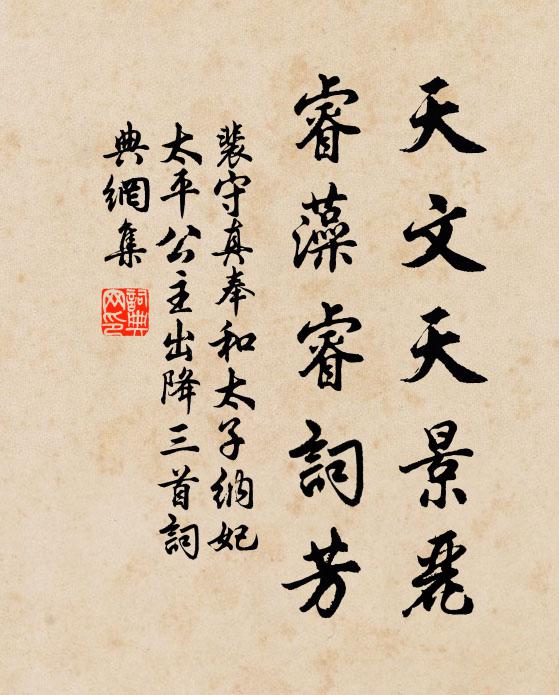 天文天景麗
睿藻睿詞芳
裴守真奉和太子納妃
太平公主出降三首詞
典網集
詞典网印